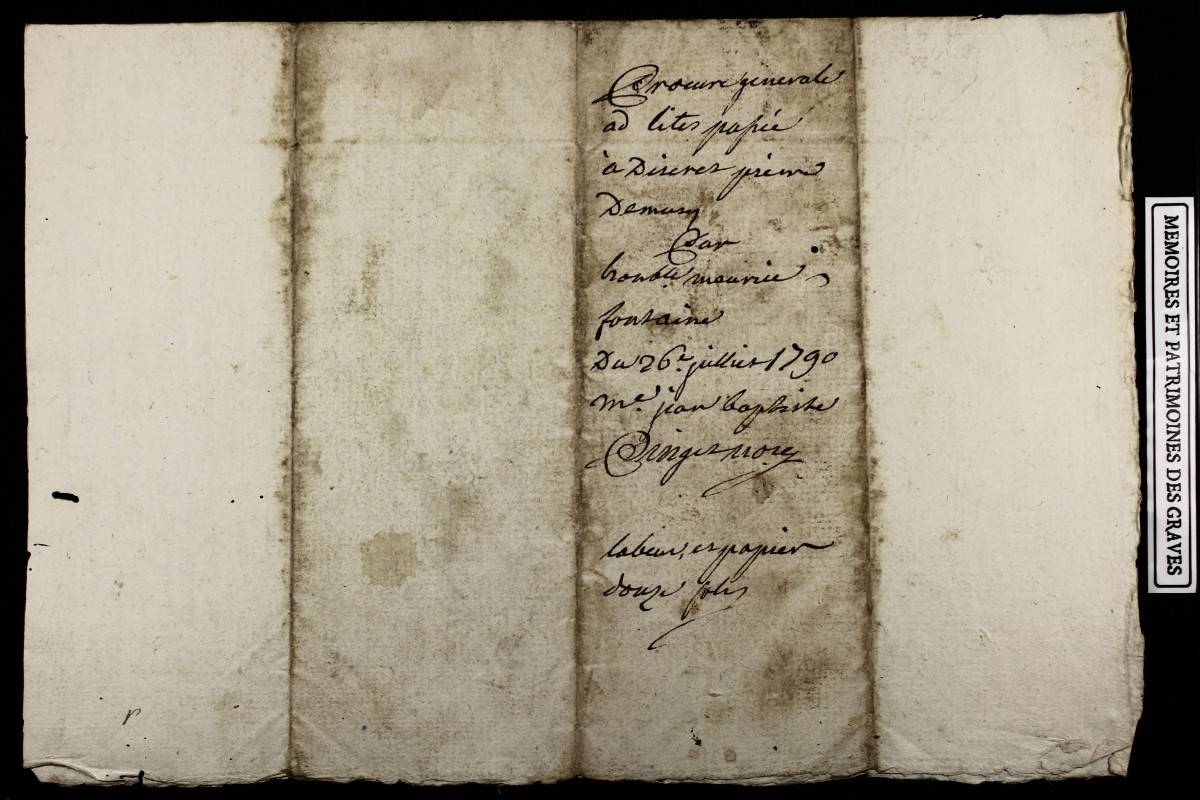 Procure generale
ad lites passée
à Discret pierre
Demusy
Par
honble maurice
fontaine
Du 26e juillet 1790
me jean baptiste
Pinget nore
labeur, et papier
douze sols
MEMOIRES ET PATRIMOINES DES GRAVES